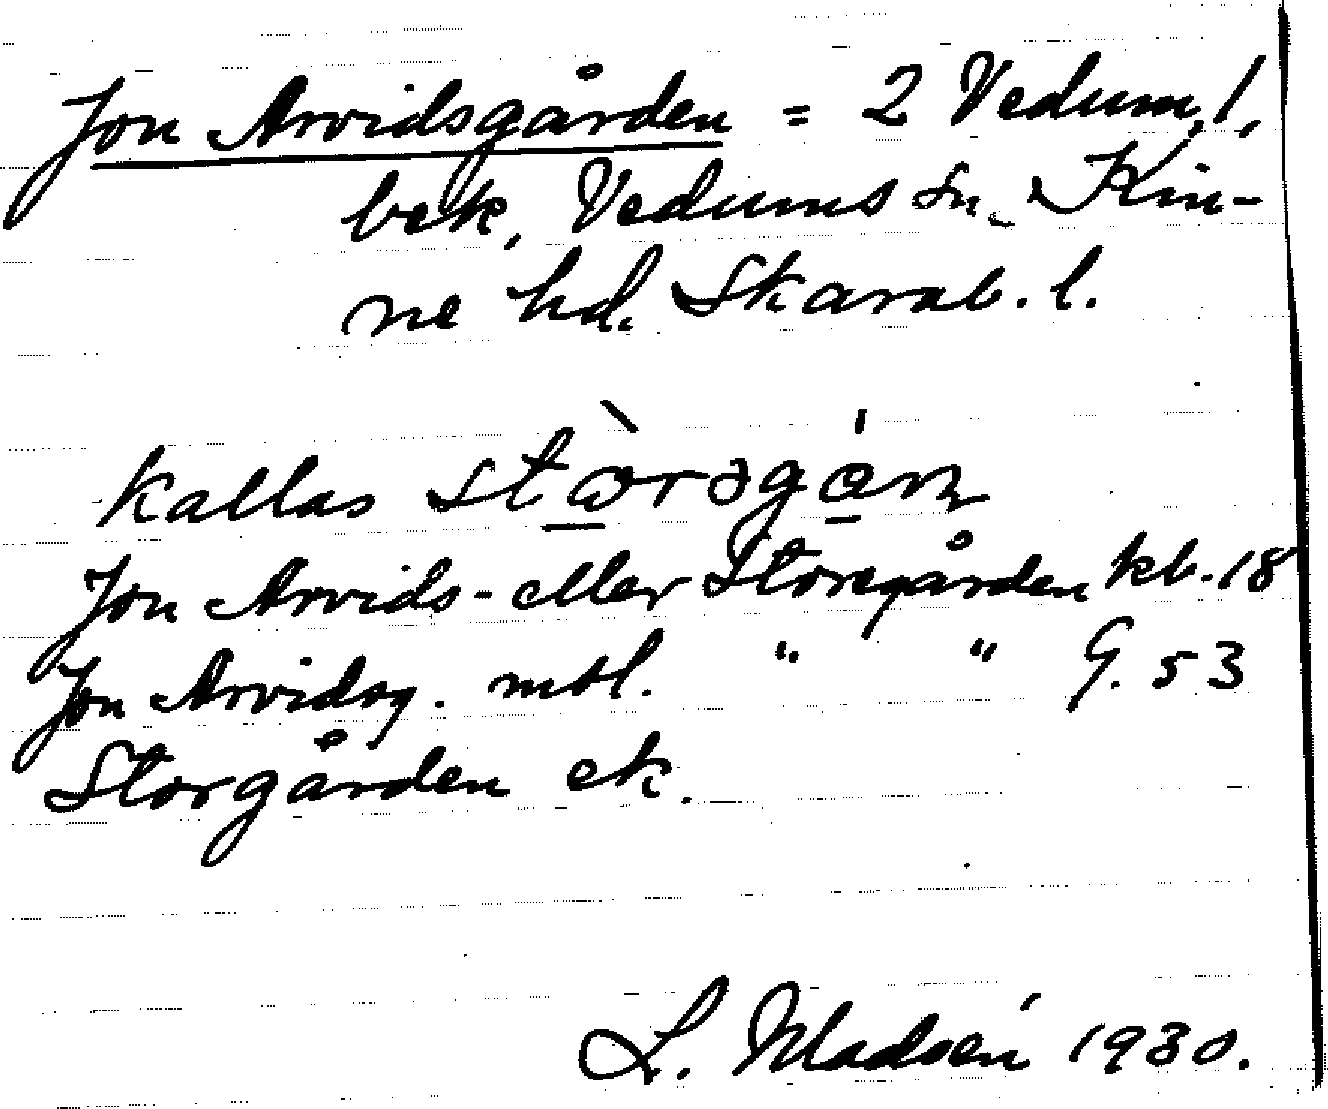 Jon Arvidsgården = 2 Vedum, 1,
bek, Vedums sn, Kin-
ne hd. Skarab. l.
kallas
Jon Arvids- eller Storegården kb. 18
Jon Arvidsg. mtl. " " G. 53
Storgården ek.
L. Madsén 1930.